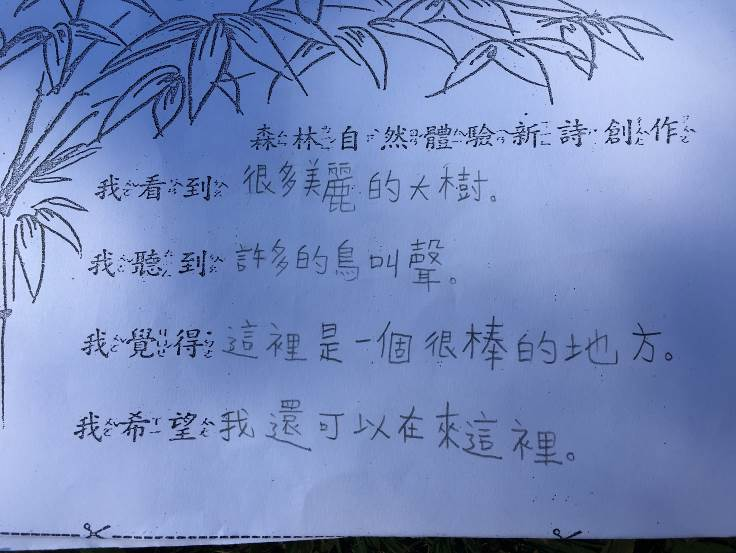 森林自然體驗新詩創作
我看到很多美麗的大樹。
我聽到許多的鳥叫聲。
我覺得這裡是一個很棒的地方。
我希望我還可以在來這裡。